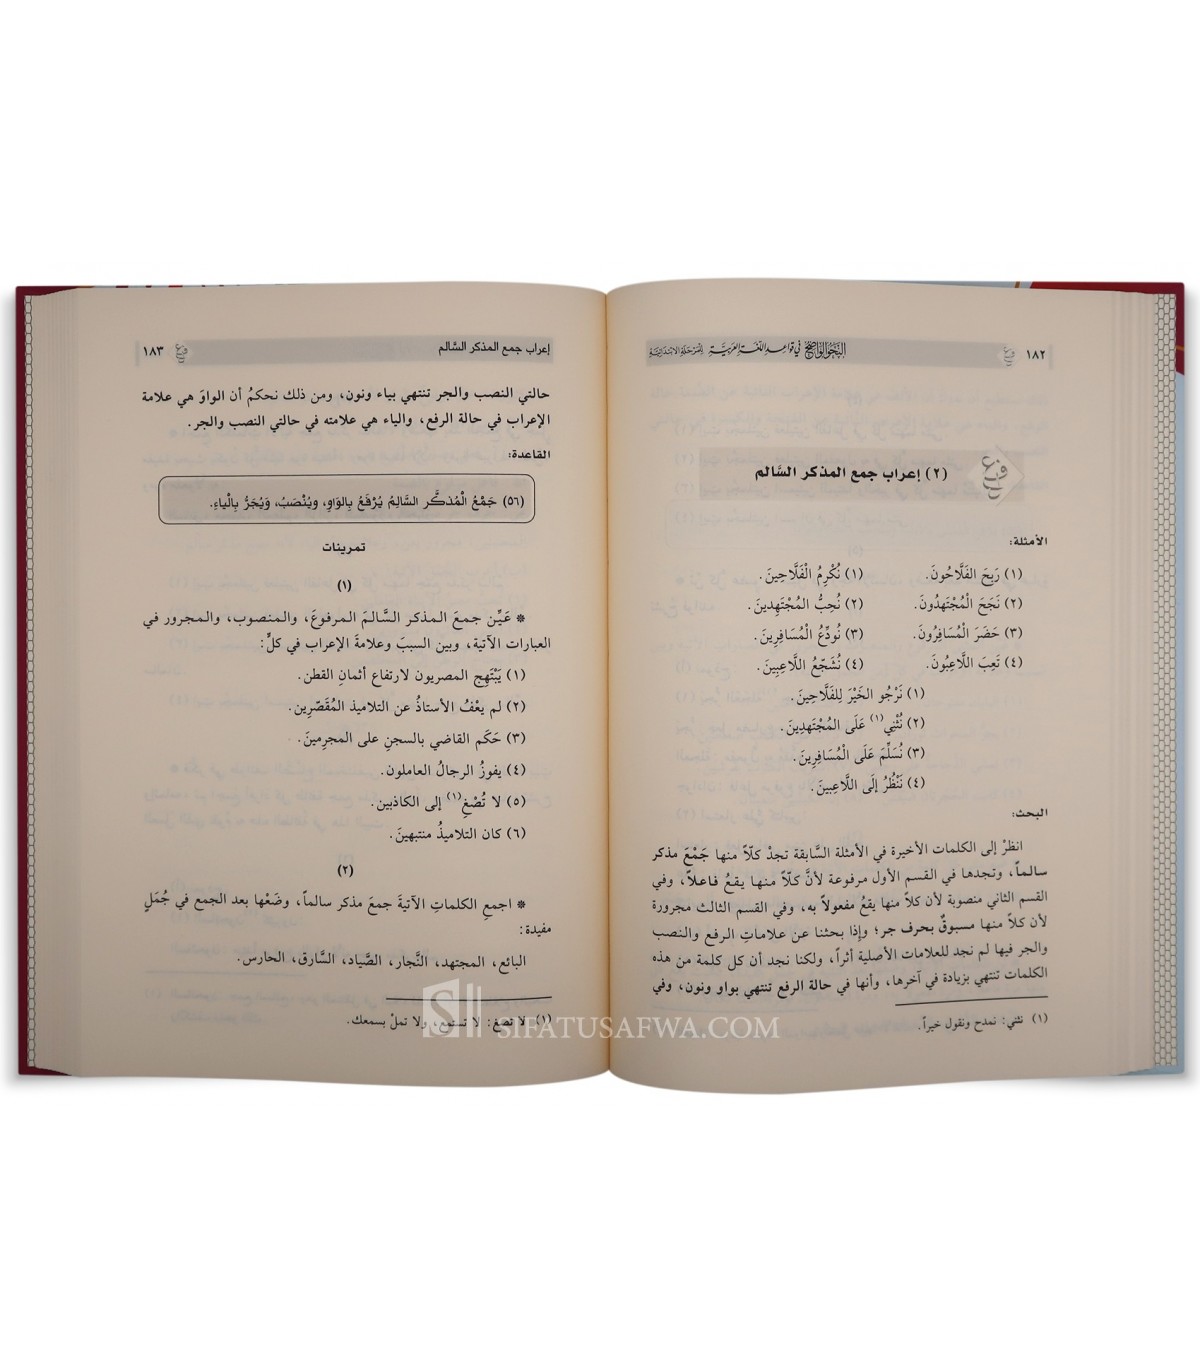 ١٨٢ النحو الواضح في قواعد اللغة العربية للمرحلة الابتدائية
(٢) إعراب جمع المذكر السَّالم
الأمثلة:
(١) رَبِحَ الْفَلَّاحُونَ. (١) نُكْرِمُ الْفَلَّاحِينَ.
(٢) نَجَحَ الْمُجْتَهِدُونَ. (٢) نُحِبُّ الْمُجْتَهِدِينَ.
(٣) حَضَرَ الْمُسَافِرُونَ. (٣) نُودِّعُ الْمُسَافِرِينَ.
(٤) تَعِبَ اللَّاعِبُونَ. (٤) نُشَجِّعُ اللَّاعِبِينَ.
(١) نَرْجُو الْخَيْرَ لِلْفَلَّاحِينَ.
(٢) نُثْنِي(١) عَلَى الْمُجْتَهِدِينَ.
(٣) نُسَلِّمُ عَلَى الْمُسَافِرِينَ.
(٤) نَنْظُرُ إلَى اللَّاعِبِينَ.
البحث:
انظرْ إلى الكلمات الأخيرة في الأمثلة السَّابقة تجدْ كلّاً منها جَمْعَ مذكر
سالماً، وتجدها في القسم الأول مرفوعة لأنَّ كلّاً منها يقعُ فاعلاً، وفي
القسم الثاني منصوبة لأن كلاً منها يقعُ مفعولاً به، وفي القسم الثالث مجرورة
لأن كلاً منها مسبوقٌ بحرف جر؛ وإذا بحثنا عن علاماتِ الرفع والنصب
والجر فيها لم نجد للعلامات الأصلية أثراً، ولكنا نجد أن كل كلمة من هذه
الكلمات تنتهي بزيادة في آخرها، وأنها في حالة الرفع تنتهي بواو ونون، وفي
(١) نثني: نمدح ونقول خيراً.
إعراب جمع المذكر السَّالم ١٨٣
حالتي النصب والجر تنتهي بياء ونون، ومن ذلك نحكمُ أن الواوَ هي علامة
الإعراب في حالة الرفع، والياء هي علامته في حالتي النصب والجر.
القاعدة:
(٥٦) جَمْعُ الْمُذكَّر السَّالِمُ يُرْفَعُ بِالوَاوِ، ويُنْصَبُ، وَيُجَرُّ بِالْياءِ.
تمرينات
(١)
* عَيِّن جمعَ المذكر السَّالمَ المرفوعَ، والمنصوب، والمجرور في
العبارات الآتية، وبين السببَ وعلامةَ الإعراب في كلٍّ:
(١) يَبْتَهِج المصريون لارتفاع أثمانِ القطن.
(٢) لم يعْفُ الأستاذُ عن التلاميذ المُقَصّرِين.
(٣) حَكَم القاضي بالسجنِ على المجرمينَ.
(٤) يفوزُ الرجالُ العاملون.
(٥) لا تُصْغِ(١) إلى الكاذبين.
(٦) كان التلاميذُ منتبهينَ.
(٢)
* اجمعِ الكلماتِ الآتيةَ جمعَ مذكر سالماً، وضَعْها بعد الجمع في جُمَلٍ
مفيدة:
البائع، المجتهد، النَّجار، الصَّياد، السَّارق، الحارس.
(١) لا تصْغ: لا تستمع، ولا تملْ بسمعك.
SIFATUSAFWA.COM